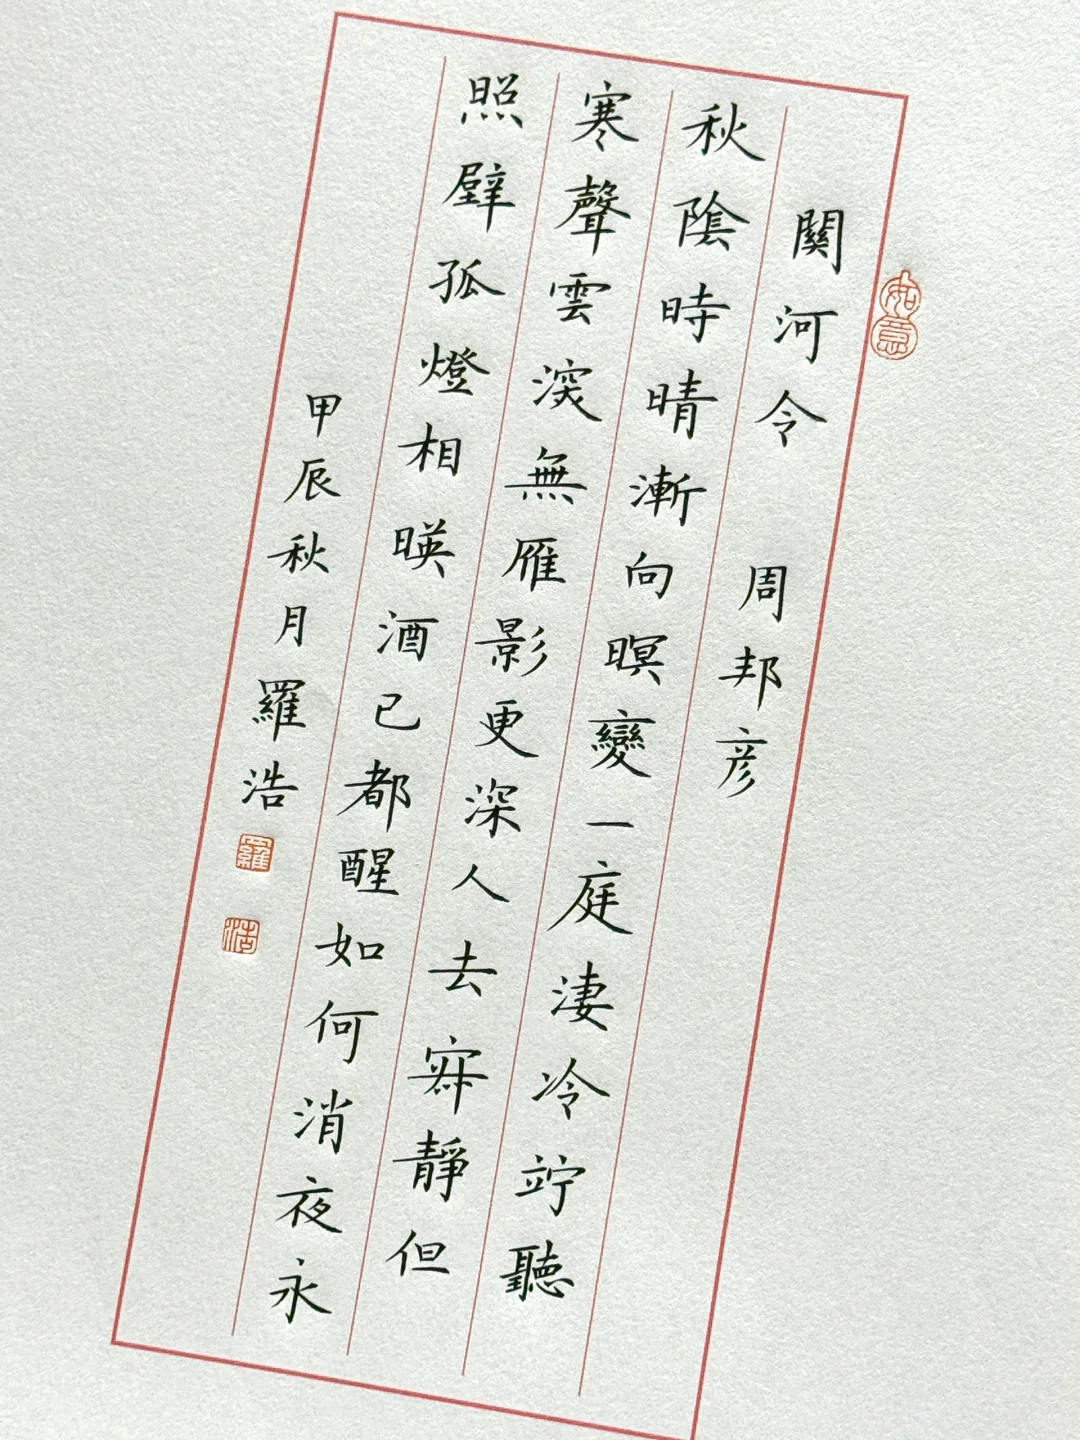 關河令 周邦彥
秋陰時晴漸向暝變一庭淒冷竚聽
寒聲雲深無雁影更深人去寂靜但
照壁孤燈相暎酒已都醒如何消夜永
甲辰秋月羅浩
如意
羅
浩